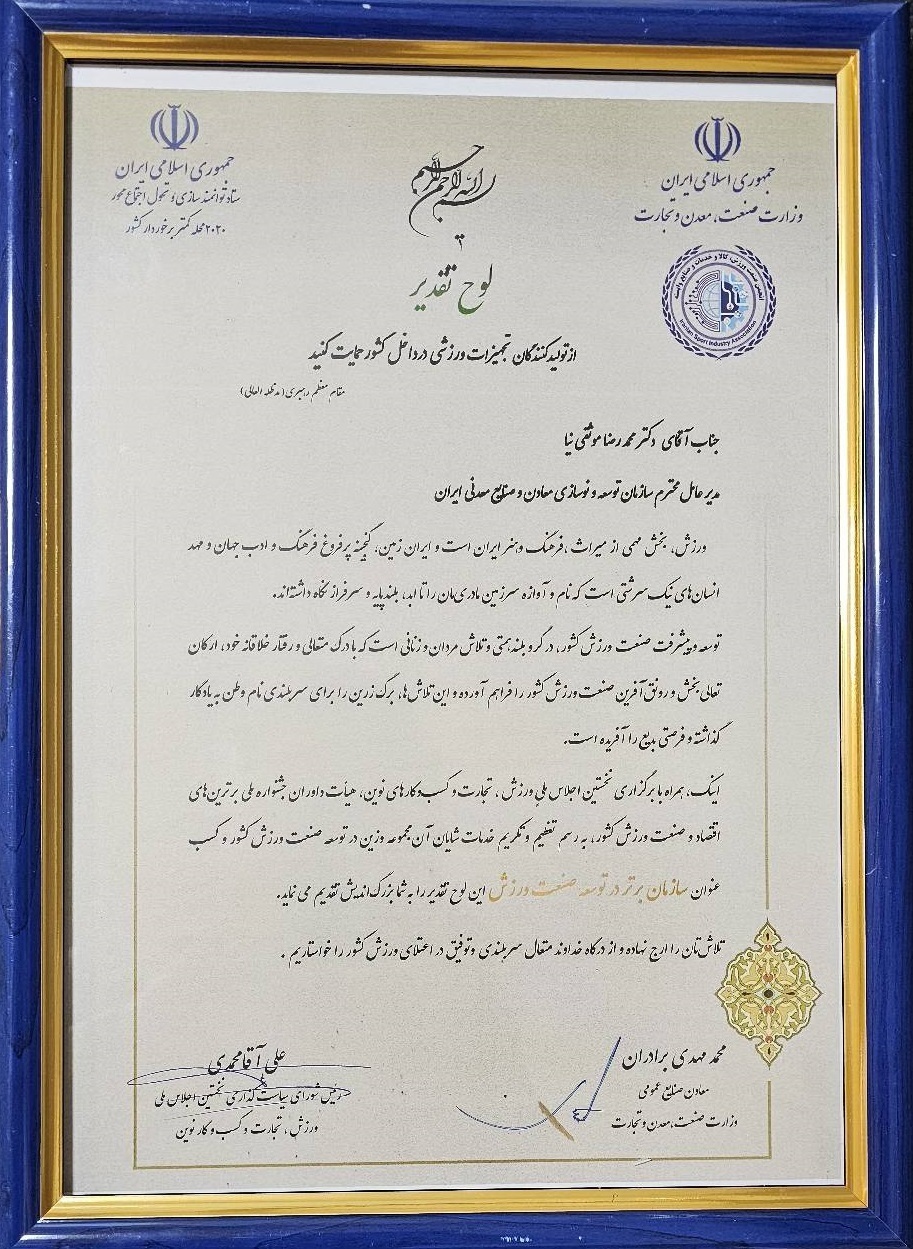 جمهوری اسلامی ایران
وزارت صنعت، معدن و تجارت
انجمن صنعت ورزش، کالا و خدمات و صنایع وابسته
Iranian Sport Industry Association
بسم الله الرحمن الرحیم
جمهوری اسلامی ایران
ستاد توانمندسازی و تحول اجتماع محور
۲۰۲۰ محله کمتر برخوردار کشور
لوح تقدیر
از تولیدکنندگان تجهیزات ورزشی در داخل کشور حمایت کنید
مقام معظم رهبری (مدظله العالی)
جناب آقای دکتر محمدرضا موثقی نیا
مدیر عامل محترم سازمان توسعه و نوسازی معادن و صنایع معدنی ایران
ورزش، بخش مهمی از میراث، فرهنگ و هنر ایران است و ایران زمین، گنجینه پر فروغ فرهنگ و ادب جهان و مهد
انسان‌های نیک سرشتی است که نام و آوازه سرزمین مادری‌مان را تا ابد، بلند پایه و سرفراز نگاه داشته‌اند.
توسعه و پیشرفت صنعت ورزش کشور، در گرو بلند همتی و تلاش مردان و زنانی است که با درک متعالی و رفتار خلاقانه خود، ارکان
تعالی بخش و رونق آفرین صنعت ورزش کشور را فراهم آورده و این تلاش‌ها، برگ زرین را برای سربلندی نام وطن به یادگار
گذاشته و فرصتی بدیع را آفریده است.
اینک، همراه با برگزاری نخستین اجلاس ملی ورزش، تجارت و کسب و کارهای نوین، هیئت داوران جشنواره ملی برترین‌های
اقتصاد و صنعت ورزش کشور، به رسم تعظیم و تکریم خدمات شایان آن مجموعه وزین در توسعه صنعت ورزش کشور و کسب
عنوان سازمان برتر در توسعه صنعت ورزش این لوح تقدیر را به شما بزرگ اندیش تقدیم می نماید.
تلاش‌تان را ارج نهاده و از درگاه خداوند متعال سربلندی و توفیق در اعتلای ورزش کشور را خواستاریم.
محمد مهدی برادران
معادن صنایع عمومی
وزارت صنعت، معدن و تجارت
علی آقامحمدی
رئیس شورای سیاست گذاری نخستین اجلاس ملی
ورزش، تجارت و کسب و کار نوین